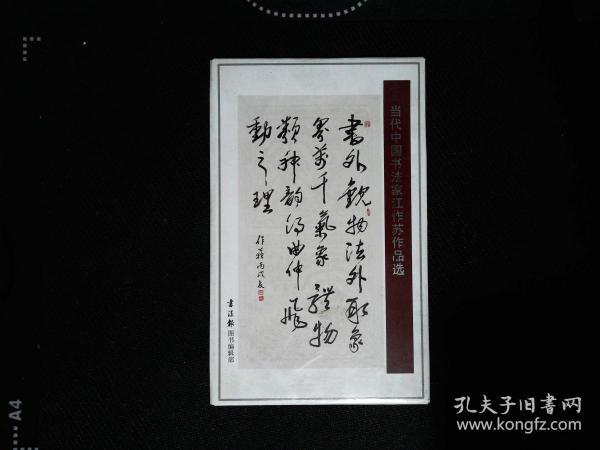 当代中国书法家江作苏作品选
書外觀物法外取象
易万千氣象 體物
類神韵得曲伸飛
動之理
作蘇丙戌夏
书法报 图书编辑部
A4
孔夫子旧書网
www.kongfz.com